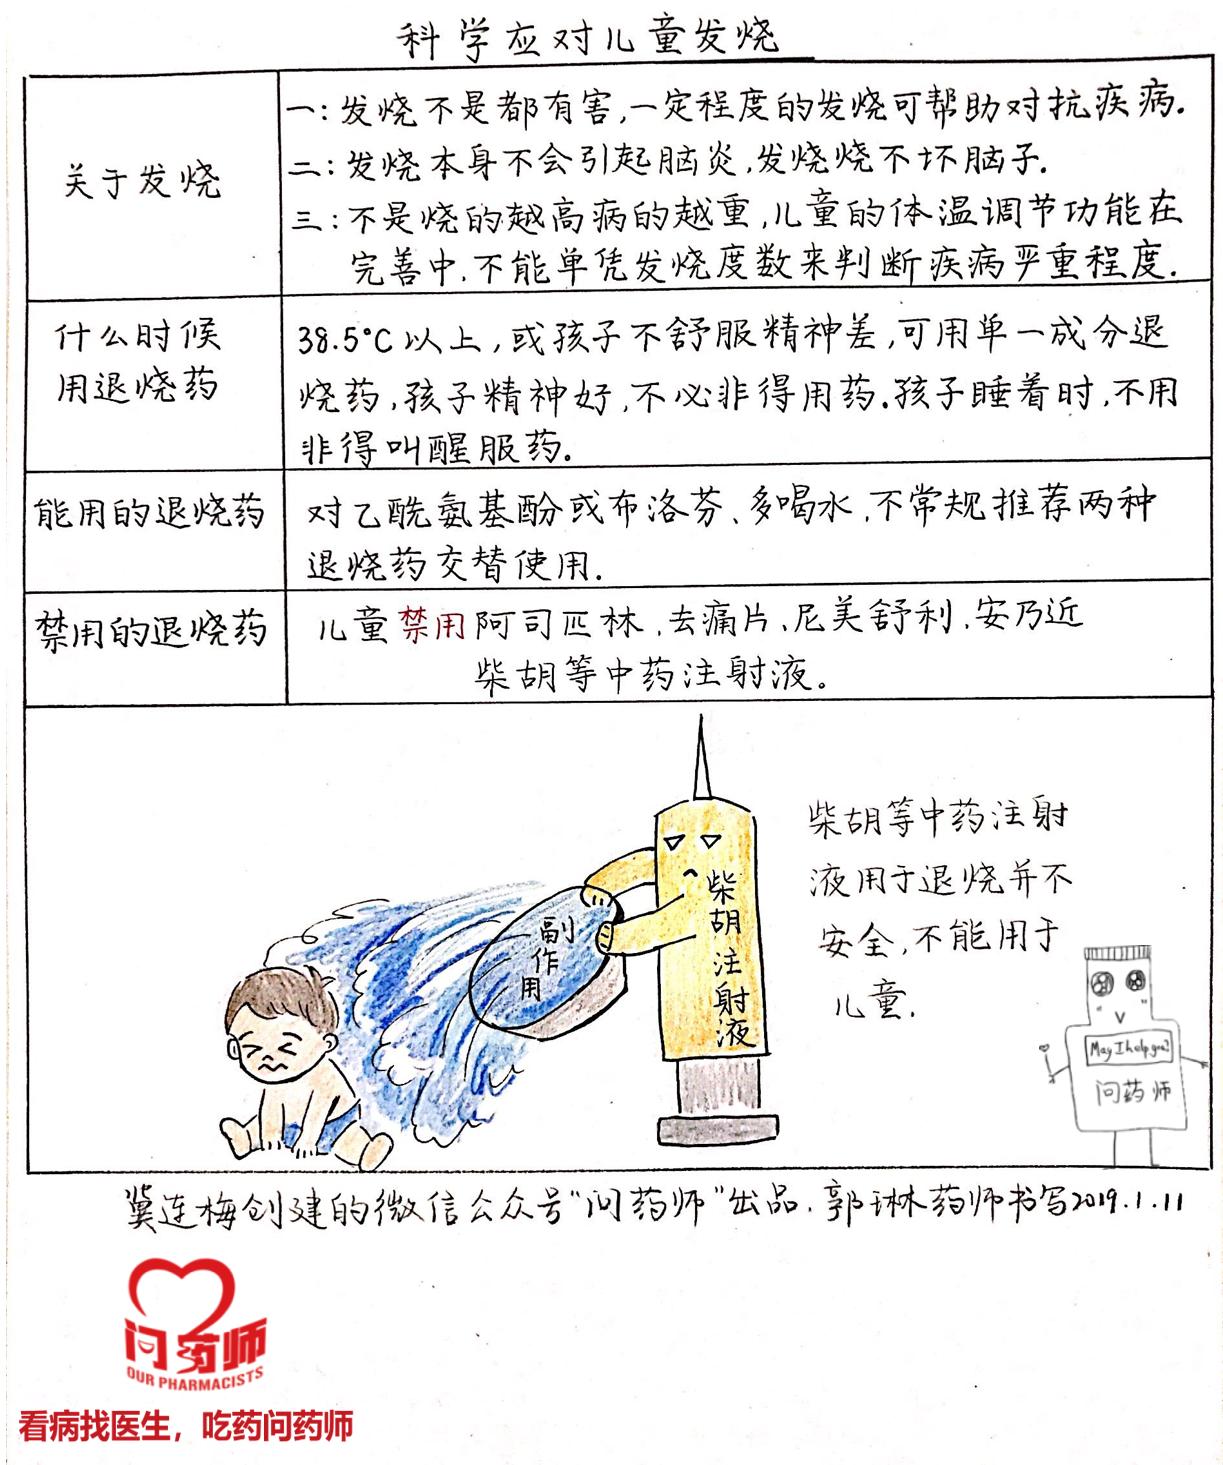 科学应对儿童发烧
关于发烧
一：发烧不是都有害,一定程度的发烧可帮助对抗疾病.
二：发烧本身不会引起脑炎,发烧烧不坏脑子.
三：不是烧的越高病的越重,儿童的体温调节功能在
完善中.不能单凭发烧度数来判断疾病严重程度.
什么时候
用退烧药
38.5°C以上,或孩子不舒服精神差,可用单一成分退
烧药,孩子精神好,不必非得用药.孩子睡着时,不用
非得叫醒服药.
能用的退烧药
对乙酰氨基酚或布洛芬、多喝水,不常规推荐两种
退烧药交替使用.
禁用的退烧药
儿童禁用阿司匹林、去痛片、尼美舒利、安乃近
柴胡等中药注射液。
副作用
柴胡注射液
柴胡等中药注射
液用于退烧并不
安全,不能用于
儿童.
May I help you?
问药师
冀连梅创建的微信公众号"问药师"出品.郭琳药师书写2019.1.11
问药师
OUR PHARMACISTS
看病找医生，吃药问药师